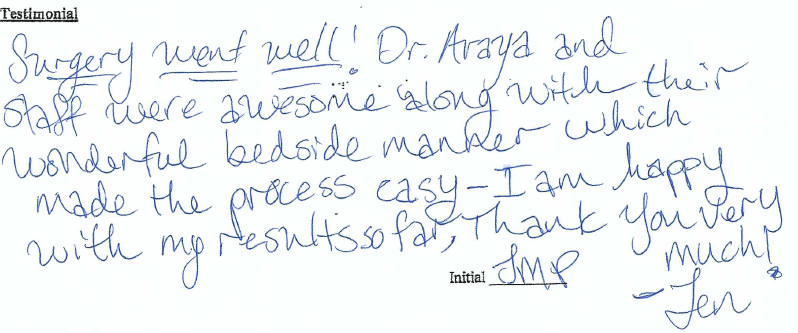 Testimonial
Surgery went well! Dr. Araya and
staff were awesome along with their
wonderful bedside manner which
made the process easy – I am happy
with my results so far, Thank you very
much!
Initial JMP
- Jen